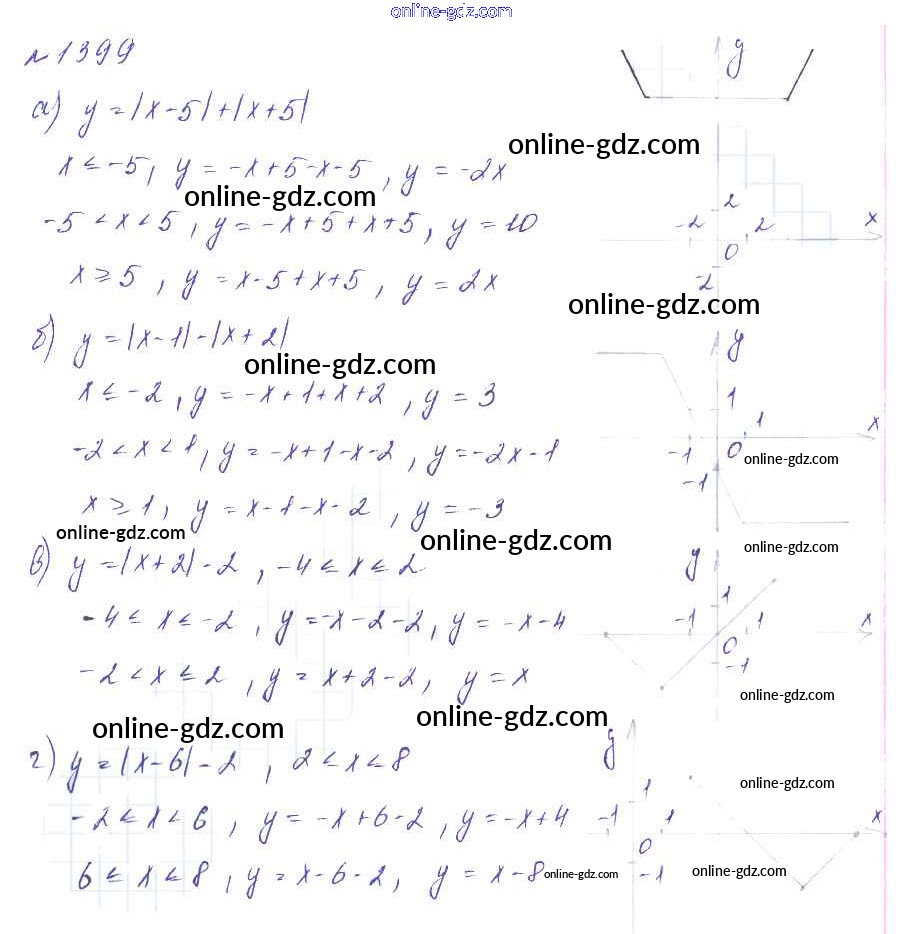 online-gdz.com
№1399
а) y = |x-5|+|x+5|
x ≤ -5, y = -x+5-x-5, y = -2x
online-gdz.com
online-gdz.com
-5 < x < 5, y = -x+5+x+5, y = 10
x ≥ 5, y = x-5+x+5, y = 2x
online-gdz.com
б) y = |x-1|-|x+2|
online-gdz.com
x ≤ -2, y = -x+1+x+2, y = 3
-2 < x < 1, y = -x+1-x-2, y = -2x-1
online-gdz.com
x ≥ 1, y = x-1-x-2, y = -3
online-gdz.com
online-gdz.com
online-gdz.com
в) y = |x+2|-2, -4 ≤ x ≤ 2
-4 ≤ x ≤ -2, y = -x-2-2, y = -x-4
-2 < x ≤ 2, y = x+2-2, y = x
online-gdz.com
online-gdz.com
online-gdz.com
г) y = |x-6|-2, 2 < x < 8
online-gdz.com
-2 ≤ x < 6, y = -x+6-2, y = -x+4
6 ≤ x < 8, y = x-6-2, y = x-8
online-gdz.com
online-gdz.com
y
2
x
-2
2
0
-2
y
1
1
x
-1
0
-1
y
1
x
-1
1
0
-1
y
1
x
-1
1
0
-1